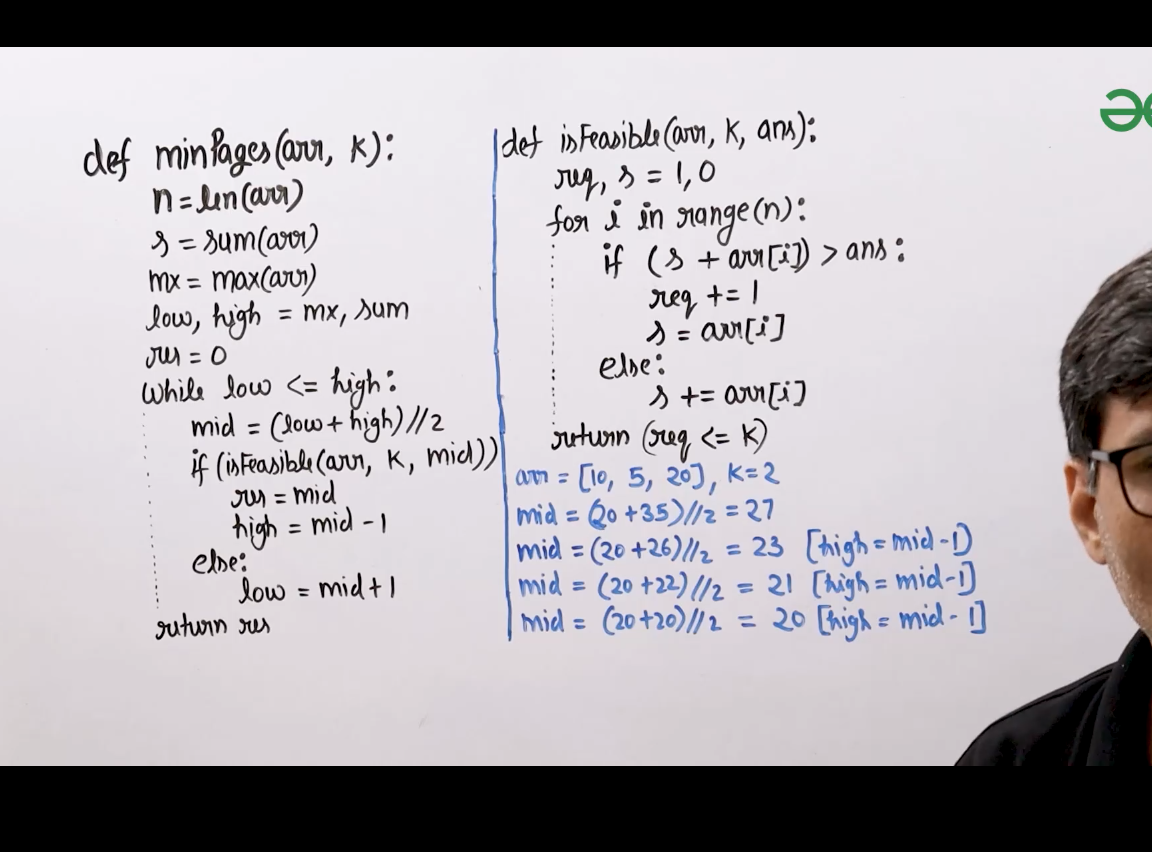 def minPages(arr, k):
n = len(arr)
s = sum(arr)
mx = max(arr)
low, high = mx, sum
res = 0
while low <= high:
mid = (low + high)//2
if (isFeasible(arr, k, mid))
res = mid
high = mid - 1
else:
low = mid + 1
return res
def isFeasible(arr, k, ans):
req, s = 1, 0
for i in range(n):
if (s + arr[i]) > ans:
req += 1
s = arr[i]
else:
s += arr[i]
return (req <= k)
arr = [10, 5, 20], k=2
mid = (20 + 35)//2 = 27
mid = (20 + 26)//2 = 23 [high = mid - 1)
mid = (20 + 22)//2 = 21 [high = mid - 1]
mid = (20 + 20)//2 = 20 [high = mid - 1]